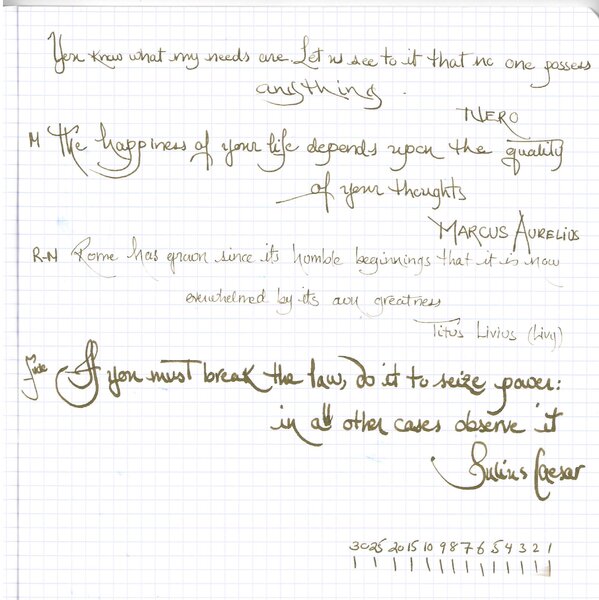 You know what my needs are. Let us see to it that no one possess
anything.
NERO
M The happiness of your life depends upon the quality
of your thoughts
MARCUS AURELIOS
R-N Rome has grown since its homble beginnings that it is now
overwhelmed by its own greatness
Titus Livius (Livy)
If you must break the law, do it to seize power:
in all other cases observe it
Julius Caesar
30 25 20 15 10 9 8 7 6 5 4 3 2 1